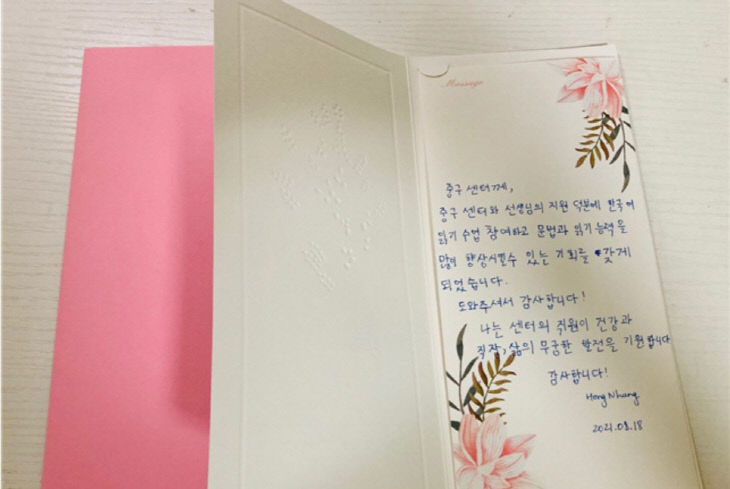 Message
중구 센터께,
중구 센터와 선생님의 지원 덕분에 한국어
읽기 수업 참여하고 문법과 읽기 능력을
많이 향상시킬수 있는 기회를 갖게
되었습니다.
도와주셔서 감사합니다!
나는 센터의 직원이 건강과
직장, 삶의 무궁한 발전을 기원합니다
감사합니다!
Hong Nhung
2021.08.18